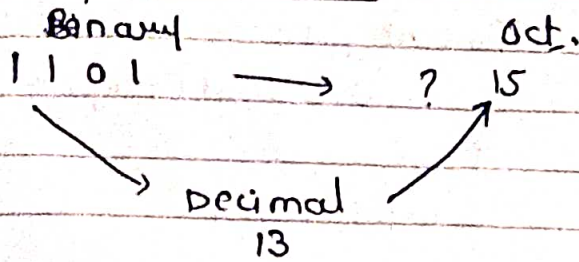 Binary Oct.
1 1 0 1 → ? 15
Decimal
13